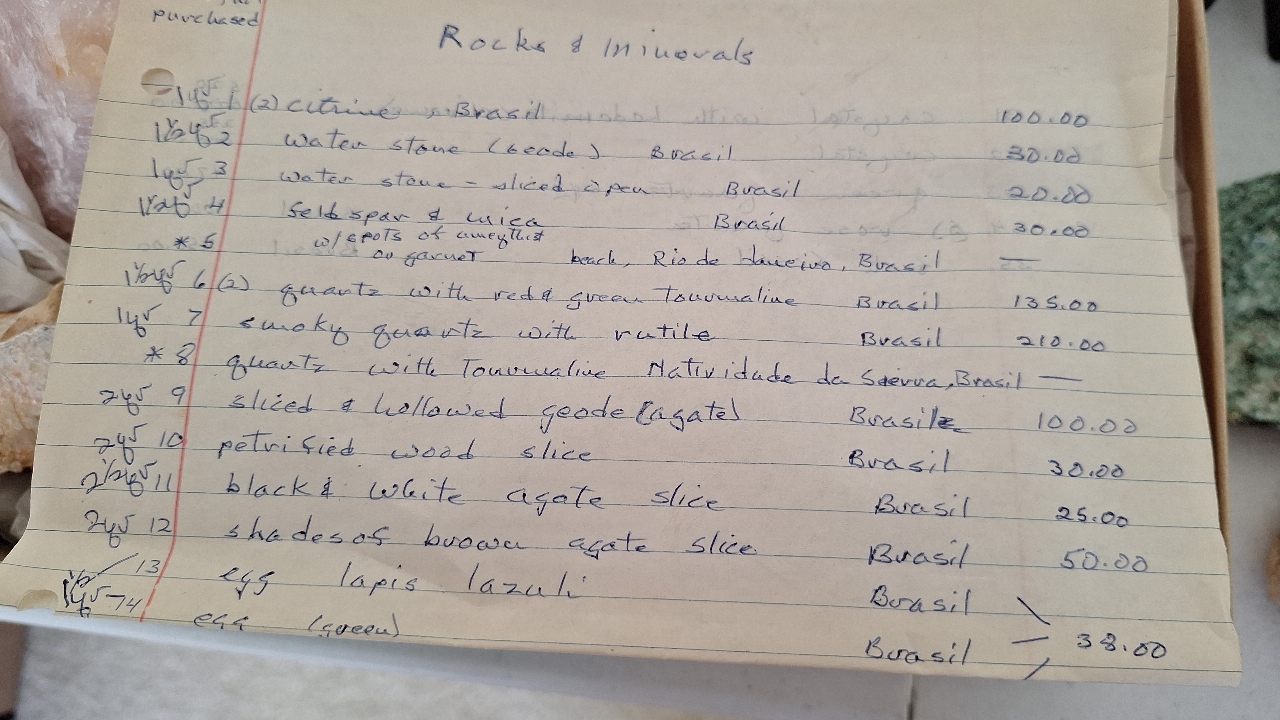 purchased
Rocks & Minerals
1 (2) citrine Brasil 100.00
2 water stone (Geode) Brasil 30.00
3 water stone - sliced open Brasil 20.00
4 feldspar & mica Brasil 30.00
w/spots of amethist
* 5 or garnet beach, Rio de Janeiro, Brasil —
6 (2) quartz with red & green Tourmaline Brasil 135.00
7 smoky quartz with rutile Brasil 210.00
* 8 quartz with Tourmaline Natividade da Saerra, Brasil —
9 sliced & hollowed geode (agate) Brasil 100.00
10 petrified wood slice Brasil 30.00
11 black & white agate slice Brasil 25.00
12 shades of brown agate slice Brasil 50.00
13 egg lapis lazuli Brasil
14 egg (green) Brasil 38.00